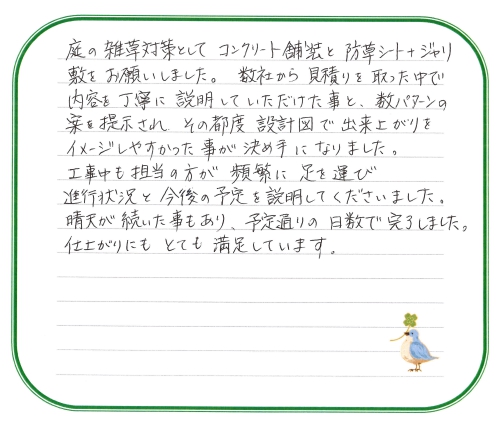 庭の雑草対策として コンクリート舗装と 防草シート+ジャリ
敷をお願いしました。 数社から見積りを取った中で
内容を丁寧に説明していただけた事と、数パターンの
案を提示され その都度 設計図で出来上がりを
イメージしやすかった事が決め手になりました。
工事中も担当の方が 頻繁に 足を運び
進行状況と今後の予定を説明してくださいました。
晴天が続いた事もあり、予定通りの日数で完了しました。
仕上がりにも とても 満足しています。